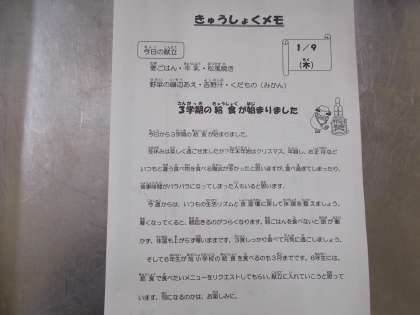 きゅうしょくメモ
今日の献立
1/9
(木)
麦ごはん・牛乳・松風焼き
野菜の磯辺あえ・吉野汁・くだもの(みかん)
3学期の給食が始まりました
今日から3学期の給食が始まりました。
冬休みは楽しく過ごせましたか?年末年始はクリスマス、年越し、お正月など
いつもと違う食べ物を食べる機会が多かったと思いますが、食べ過ぎてしまったり、
食事時間がバラバラになってしまった人もいると思います。
今週からは、いつもの生活リズムと食習慣に戻して体調を整えましょう。
寒くなってくると、朝起きるのがつらくなります。朝ごはんを食べないと頭が働
かず、体温も上がらず寒いままです。3食しっかり食べて元気に過ごしましょう。
そして6年生が旭小学校の給食を食べるのも3月までです。6年生には、
給食で食べたいメニューをリクエストしてもらい、献立に入れていこうと思って
います。何になるのかは、お楽しみに。